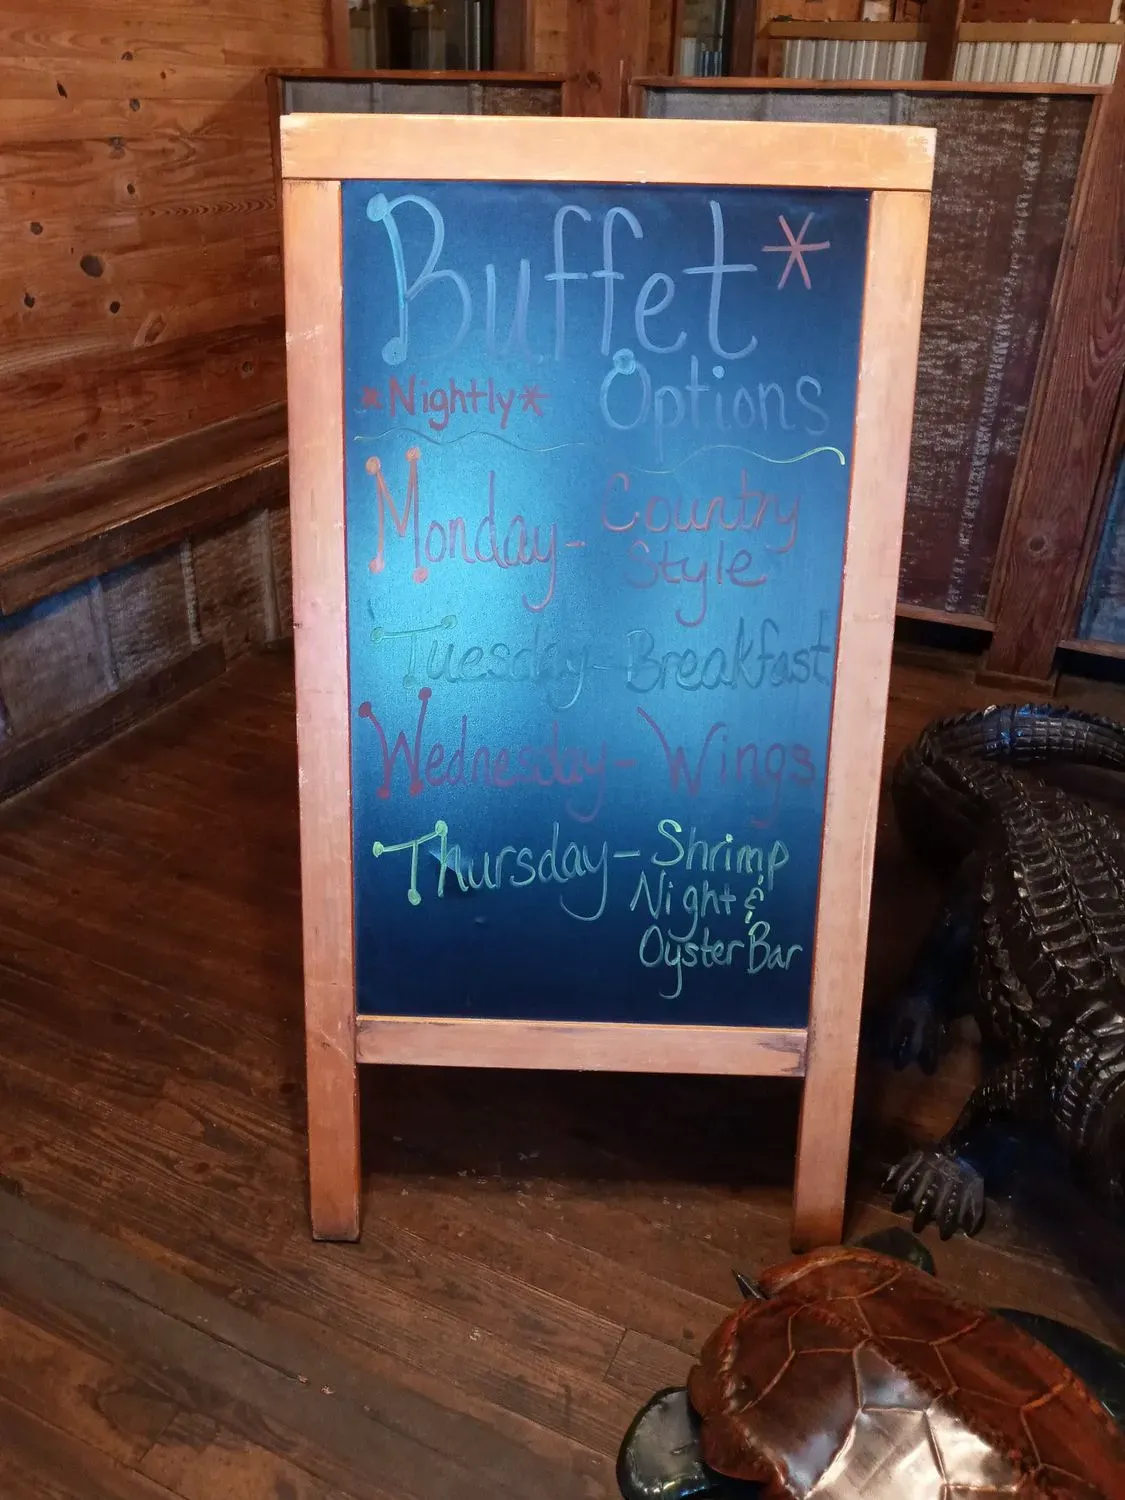 Buffet*
*Nightly* Options
Monday- Country
Style
Tuesday-Breakfast
Wednesday-Wings
Thursday-Shrimp
Night &
Oyster Bar